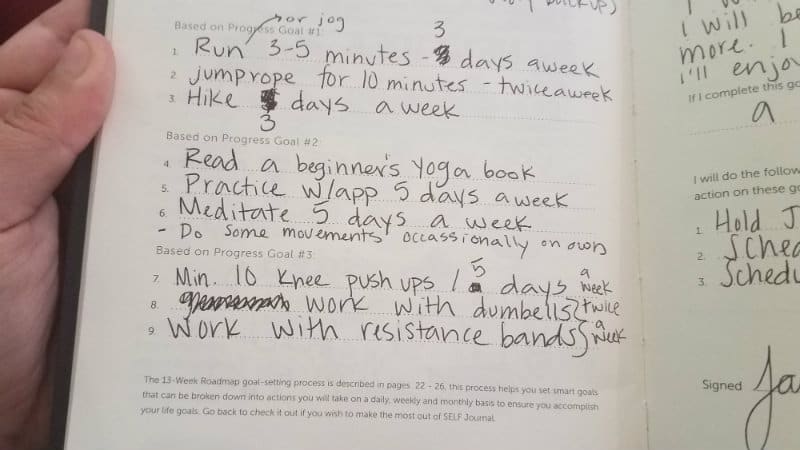 or jog
Based on Progress Goal #1:
3
1. Run 3-5 minutes - days a week
2. jump rope for 10 minutes - twice a week
3. Hike days a week
3
Based on Progress Goal #2
4. Read a beginner's yoga book
5. Practice w/app 5 days a week
6. Meditate 5 days a week
- Do some movements occassionally on own
Based on Progress Goal #3:
5 a
7. Min. 10 knee push ups / days week
8. work with dumbells } twice
9. Work with resistance bands } a week
The 13-Week Roadmap goal-setting process is described in pages 22 - 26, this process helps you set smart goals
that can be broken down into actions you will take on a daily, weekly and monthly basis to ensure you accomplish
your life goals. Go back to check it out if you wish to make the most out of SELF Journal.
I will be
more. I
I'll enjoy
If I complete this go
a
I will do the follow
action on these go
1. Hold J
2. Sched
3. Schedu
Signed Ja